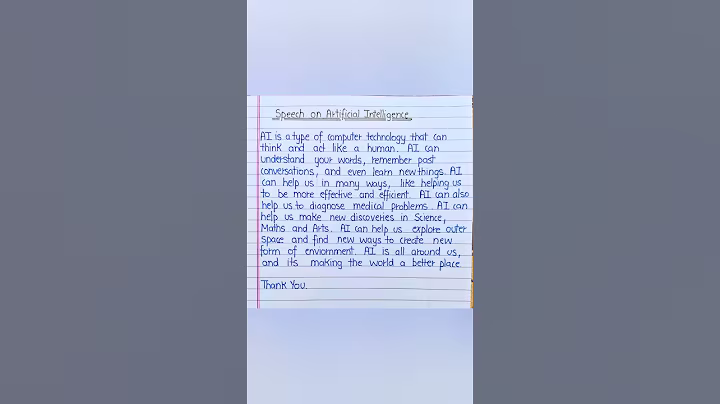 Speech on Artificial Intelligence
AI is a type of computer technology that can
think and act like a human. AI can
understand your words, remember past
conversations, and even learn new things. AI
can help us in many ways, like helping us
to be more effective and efficient. AI can also
help us to diagnose medical problems. AI can
help us make new discoveries in Science,
Maths and Arts. AI can help us explore outer
space and find new ways to create new
form of enviornment. AI is all around us,
and its making the world a better place
Thank You.